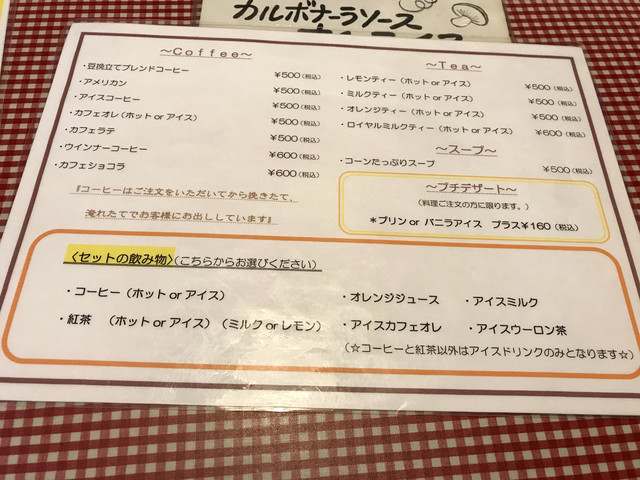 カルボナーラソース
～Coffee～
・豆挽立てブレンドコーヒー ¥500(税込)
・アメリカン ¥500(税込)
・アイスコーヒー ¥500(税込)
・カフェオレ(ホット or アイス) ¥500(税込)
・カフェラテ ¥500(税込)
・ウインナーコーヒー ¥600(税込)
・カフェショコラ ¥600(税込)
『コーヒーはご注文をいただいてから挽きたて、
淹れたてでお客様にお出ししています』
～Tea～
・レモンティー(ホット or アイス) ¥500(税込)
・ミルクティー(ホット or アイス) ¥500(税込)
・オレンジティー(ホット or アイス) ¥500(税込)
・ロイヤルミルクティー(ホット or アイス) ¥600(税込)
～スープ～
・コーンたっぷりスープ ¥500(税込)
～プチデザート～
(料理ご注文の方に限ります。)
＊プリン or バニラアイス プラス¥160(税込)
〈セットの飲み物〉(こちらからお選びください)
・コーヒー(ホット or アイス)
・紅茶 (ホット or アイス)(ミルク or レモン)
・オレンジジュース ・アイスミルク
・アイスカフェオレ ・アイスウーロン茶
(☆コーヒーと紅茶以外はアイスドリンクのみとなります☆)